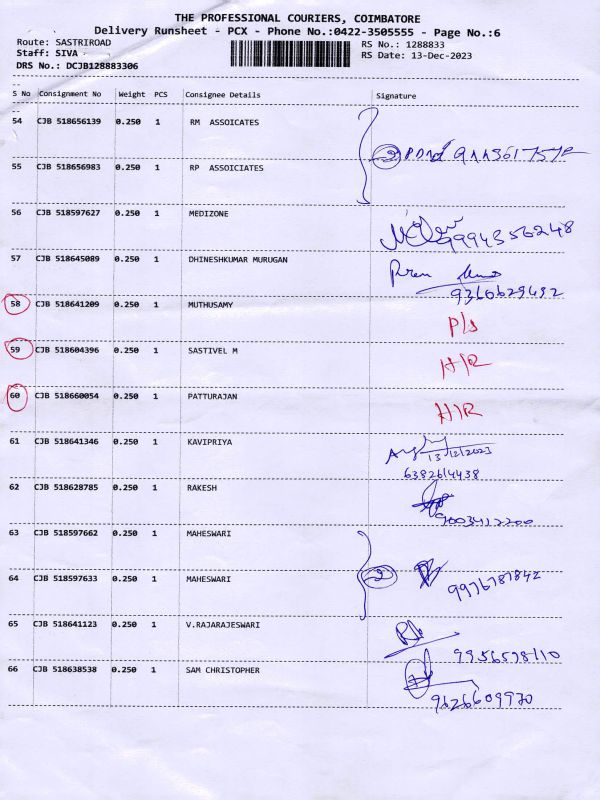 THE PROFESSIONAL COURIERS, COIMBATORE
Delivery Runsheet - PCX - Phone No.:0422-3505555 - Page No.:6
Route: SASTRIROAD RS No.: 1288833
Staff: SIVA RS Date: 13-Dec-2023
DRS No.: DCJB128883306
S No Consignment No Weight PCS Consignee Details Signature
54 CJB 518656139 0.250 1 RM ASSOICATES
2
55 CJB 518656983 0.250 1 RP ASSOICIATES
56 CJB 518597627 0.250 1 MEDIZONE
9994356248
57 CJB 518645089 0.250 1 DHINESHKUMAR MURUGAN
9360629492
58 CJB 518641209 0.250 1 MUTHUSAMY P/S
59 CJB 518604396 0.250 1 SASTIVEL M H/R
60 CJB 518660054 0.250 1 PATTURAJAN H/R
61 CJB 518641346 0.250 1 KAVIPRIYA
13/12/2023
6382614438
62 CJB 518628785 0.250 1 RAKESH
9003412200
63 CJB 518597662 0.250 1 MAHESWARI
2
64 CJB 518597633 0.250 1 MAHESWARI
9976787842
65 CJB 518641123 0.250 1 V.RAJARAJESWARI
9956578110
66 CJB 518638538 0.250 1 SAM CHRISTOPHER
9626609970